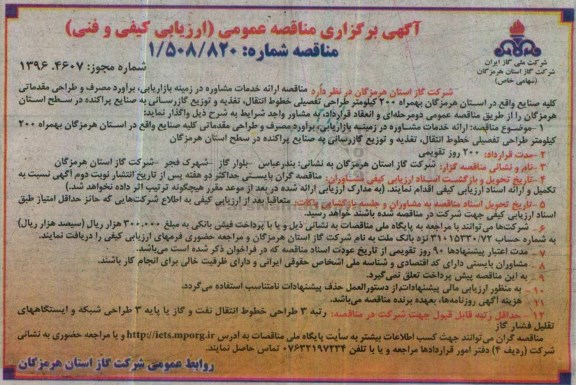 آگهی برگزاری مناقصه عمومی (ارزیابی کیفی و فنی)
مناقصه شماره: ۱/۵۰۸/۸۲۰
شماره مجوز: ۱۳۹۶.۴۶۰۷
شرکت ملی گاز ایران
شرکت گاز استان هرمزگان
(سهامی خاص)
شرکت گاز استان هرمزگان در نظر دارد مناقصه ارائه خدمات مشاوره در زمینه بازاریابی، براورد مصرف و طراحی مقدماتی
کلیه صنایع واقع در استان هرمزگان بهمراه ۲۰۰ کیلومتر طراحی تفصیلی خطوط انتقال، تغذیه و توزیع گازرسانی به صنایع پراکنده در سطح استان
هرمزگان را از طریق مناقصه عمومی دومرحله‌ای و انعقاد قرارداد، به مشاور واجد شرایط به شرح ذیل واگذار نماید:
۱-موضوع مناقصه: ارائه خدمات مشاوره در زمینه بازاریابی، براورد مصرف و طراحی مقدماتی کلیه صنایع واقع در استان هرمزگان بهمراه ۲۰۰
کیلومتر طراحی تفصیلی خطوط انتقال، تغذیه و توزیع گازرسانی به صنایع پراکنده در سطح استان هرمزگان
۲-مدت قرارداد: ۲۰۰ روز تقویمی
۳-نام و نشانی مناقصه گزار: شرکت گاز استان هرمزگان به نشانی: بندرعباس -بلوار گاز -شهرک فجر -شرکت گاز استان هرمزگان
۴-تاریخ تحویل و بازگشت اسناد ارزیابی کیفی مشاوران: مناقصه گران بایستی حداکثر دو هفته پس از تاریخ انتشار نوبت دوم آگهی نسبت به
تکمیل و ارائه اسناد ارزیابی کیفی اقدام نمایند. (به مدارک ارزیابی ارائه شده در بعد از موعد مقرر هیچگونه ترتیب اثر داده نخواهد شد.)
۵-تاریخ تحویل اسناد مناقصه به مشاوران و جلسه بازگشایی پاکات: متعاقبا بعد از ارزیابی کیفی به اطلاع شرکت‌هایی که حائز حداقل امتیاز طبق
اسناد ارزیابی کیفی جهت شرکت در مناقصه شده باشند خواهد رسید.
۶- شرکت‌ها می‌توانند با مراجعه به پایگاه ملی مناقصات به نشانی ذیل و یا با پرداخت فیش بانکی به مبلغ ۳۰۰.۰۰۰ هزار ریال (سیصد هزار ریال)
به شماره حساب ۳۱۰۱۵۳۳۰/۷۲ نزد بانک ملت به نام شرکت گاز استان هرمزگان و مراجعه حضوری فرمهای ارزیابی کیفی را دریافت نمایند.
۷- مدت اعتبار پیشنهادها ۹۰ روز تقویمی از تاریخ عودت اسناد مناقصه که در فراخوان ذکر شده است میباشد.
۸- مشاوران بایستی دارای کد اقتصادی و شناسه ملی اشخاص حقوقی ایرانی و دارای ظرفیت خالی برای انجام کار باشند.
۹- به این مناقصه پیش پرداخت تعلق نمی‌گیرد.
۱۰- به منظور ارزیابی مالی پیشنهادات،از دستورالعمل حذف پیشنهادات نامتناسب استفاده می‌گردد.
۱۱- هزینه آگهی روزنامه‌ها، بعهده برنده مناقصه می‌باشد.
۱۲-حداقل رتبه قابل قبول جهت شرکت در مناقصه: رتبه ۳ طراحی خطوط انتقال نفت و گاز یا پایه ۳ طراحی شبکه و ایستگاههای
تقلیل فشار گاز
مناقصه گران می‌توانند جهت کسب اطلاعات بیشتر به سایت پایگاه ملی مناقصات به آدرس http://iets.mporg.ir و یا مراجعه حضوری به نشانی
شرکت (ردیف ۳) دفتر امور قراردادها مراجعه و یا با تلفن ۰۷۶۳۲۱۹۷۲۳۴ تماس حاصل نمایند.
روابط عمومی شرکت گاز استان هرمزگان